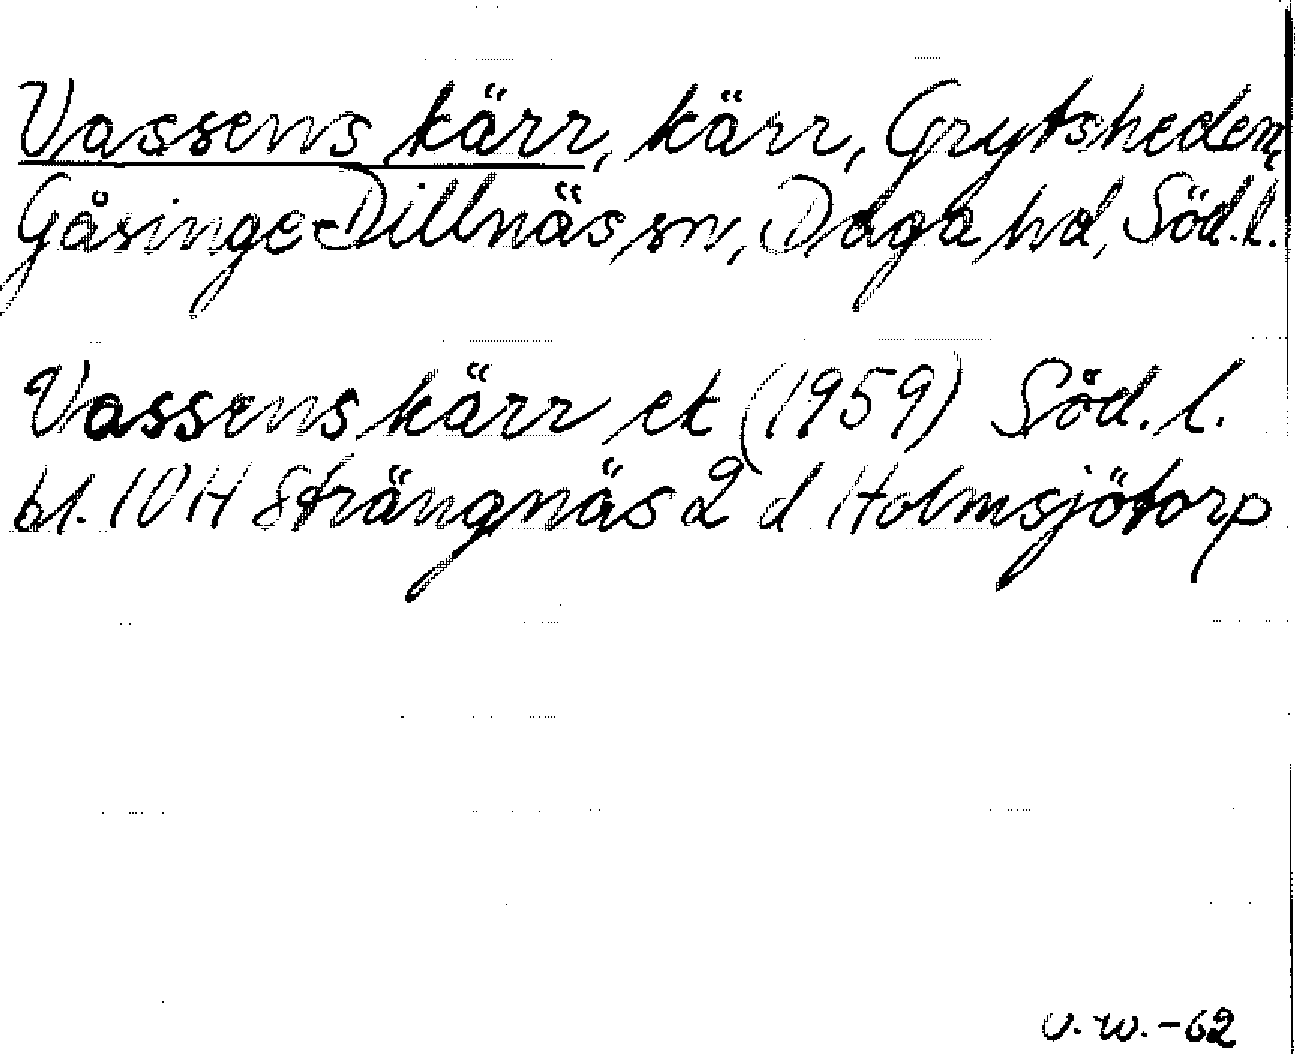 Vassens kärr, kärr, Grytsheden,
Gåsinge-Dillnäs sn, Daga hd, Söd.l.
Vassens kärr ek (1959) Söd.l.
bl. 10 H Strängnäs 2 d Holmsjötorp
U.W.-62